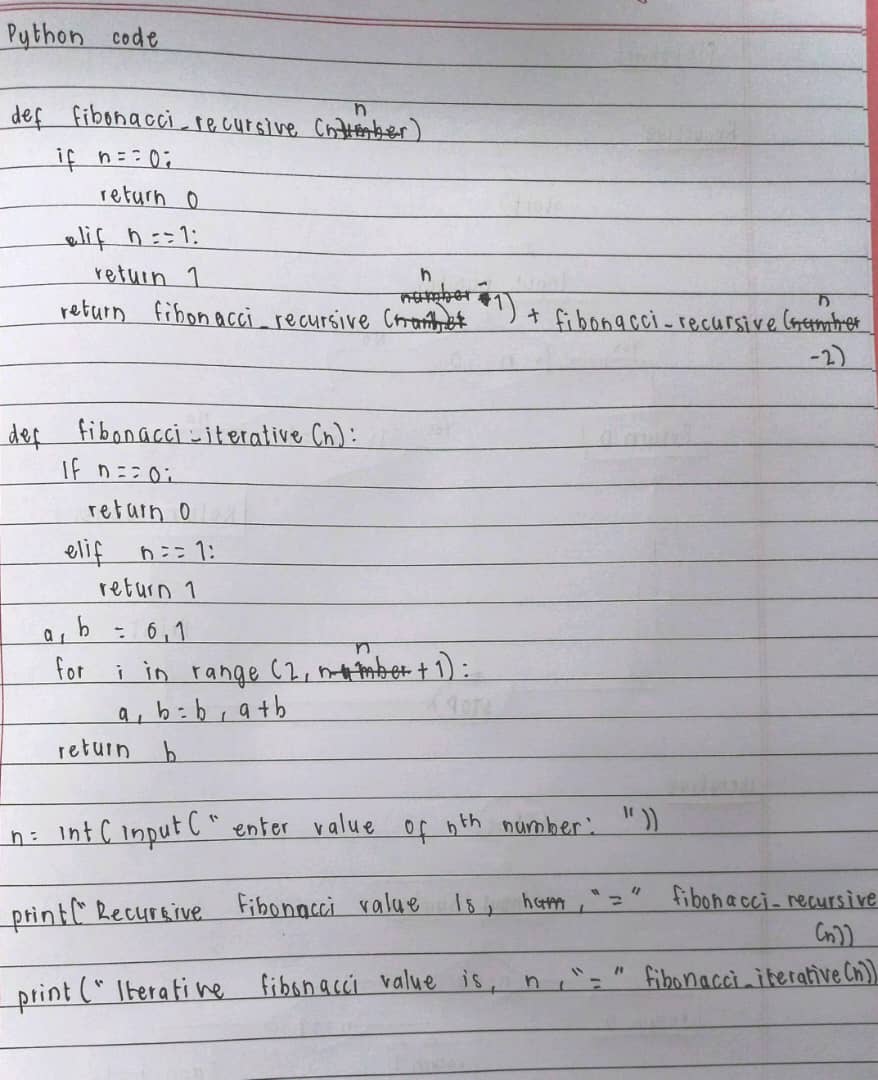 Python code
def fibonacci_recursive (n)
if n==0:
return 0
elif n==1:
return 1
return fibonacci_recursive (n-1) + fibonacci_recursive (n
-2)
def fibonacci_iterative (n):
If n==0:
return 0
elif n==1:
return 1
a, b = 0,1
for i in range (2, n+1):
a, b=b, a+b
return b
n= int ( input (" enter value of nth number: "))
print(" Recursive Fibonacci value is, num, "=" fibonacci_recursive
(n))
print (" Iterative fibonacci value is, n, "=" fibonacci_iterative (n))